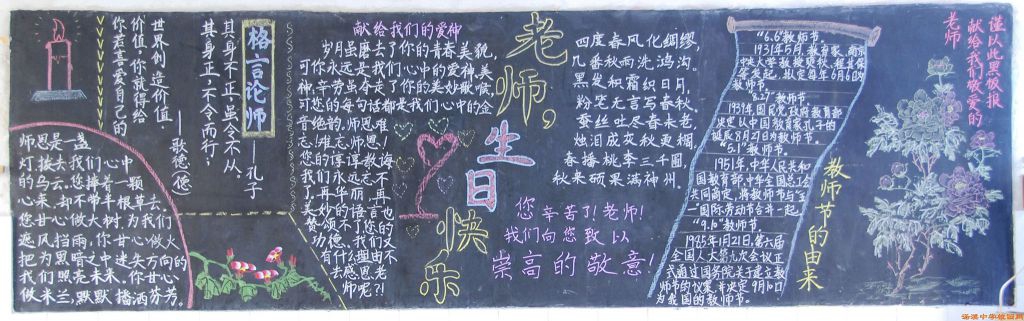 谨以此黑板报
献给我们敬爱的
老师
世界创造价值，
价值，你就得给
你若喜爱自己的
——歌德（德）
格言论师
其身不正，虽令不从。
其身正，不令而行；
——孔子
师恩是一盏
灯，拨去我们心中
的乌云。您捧着一颗
心来，却不带半根草去。
您甘心做大树，为我们
遮风挡雨，你甘心做火
把为黑暗之中迷失方向的
我们照亮未来。你甘心
做米兰，默默播洒芬芳。
献给我们的爱神
岁月虽磨去了你的青春美貌，
可你永远是我们心中的爱神，美
神，辛劳虽夺走了你的美妙歌喉，
可您的每句话都是我们心中的金
音绝韵。师恩难
忘！难忘师恩！
您的谆谆教诲
我们永远忘不
了，再华丽、再
美妙的语言也
赞颂不了您的
功德。我们又
有什么理由不
去感恩老
师呢？！
老师，
生日
快乐
四度春风化绸缪，
几番秋雨洗鸿沟。
黑发积霜织日月，
粉笔无言写春秋。
蚕丝吐尽春未老，
烛泪成灰秋更稠。
春播桃李三千圃，
秋来硕果满神州。
您辛苦了！老师！
我们向您致以
崇高的敬意！
"6.6"教师节。
1931年5月，教育家、南京
中央大学教授
等发起，拟定每年6月6日
教师节。
"8.27"教师节。
1939年国民党政府教育部
决定以中国教育家孔子的
诞辰8月27日为教师节。
"5.1"教师节。
1951年，中华人民共和
国教育部、中华全国总工会
共同商定，将教师节与"五
一"国际劳动节合并一起。
"9.10"教师节。
1985年1月21日，第六届
全国人大第九次会议正
式通过国务院关于建立教
师节的议案，并决定9月10日
为我国的教师节。
教师节的由来